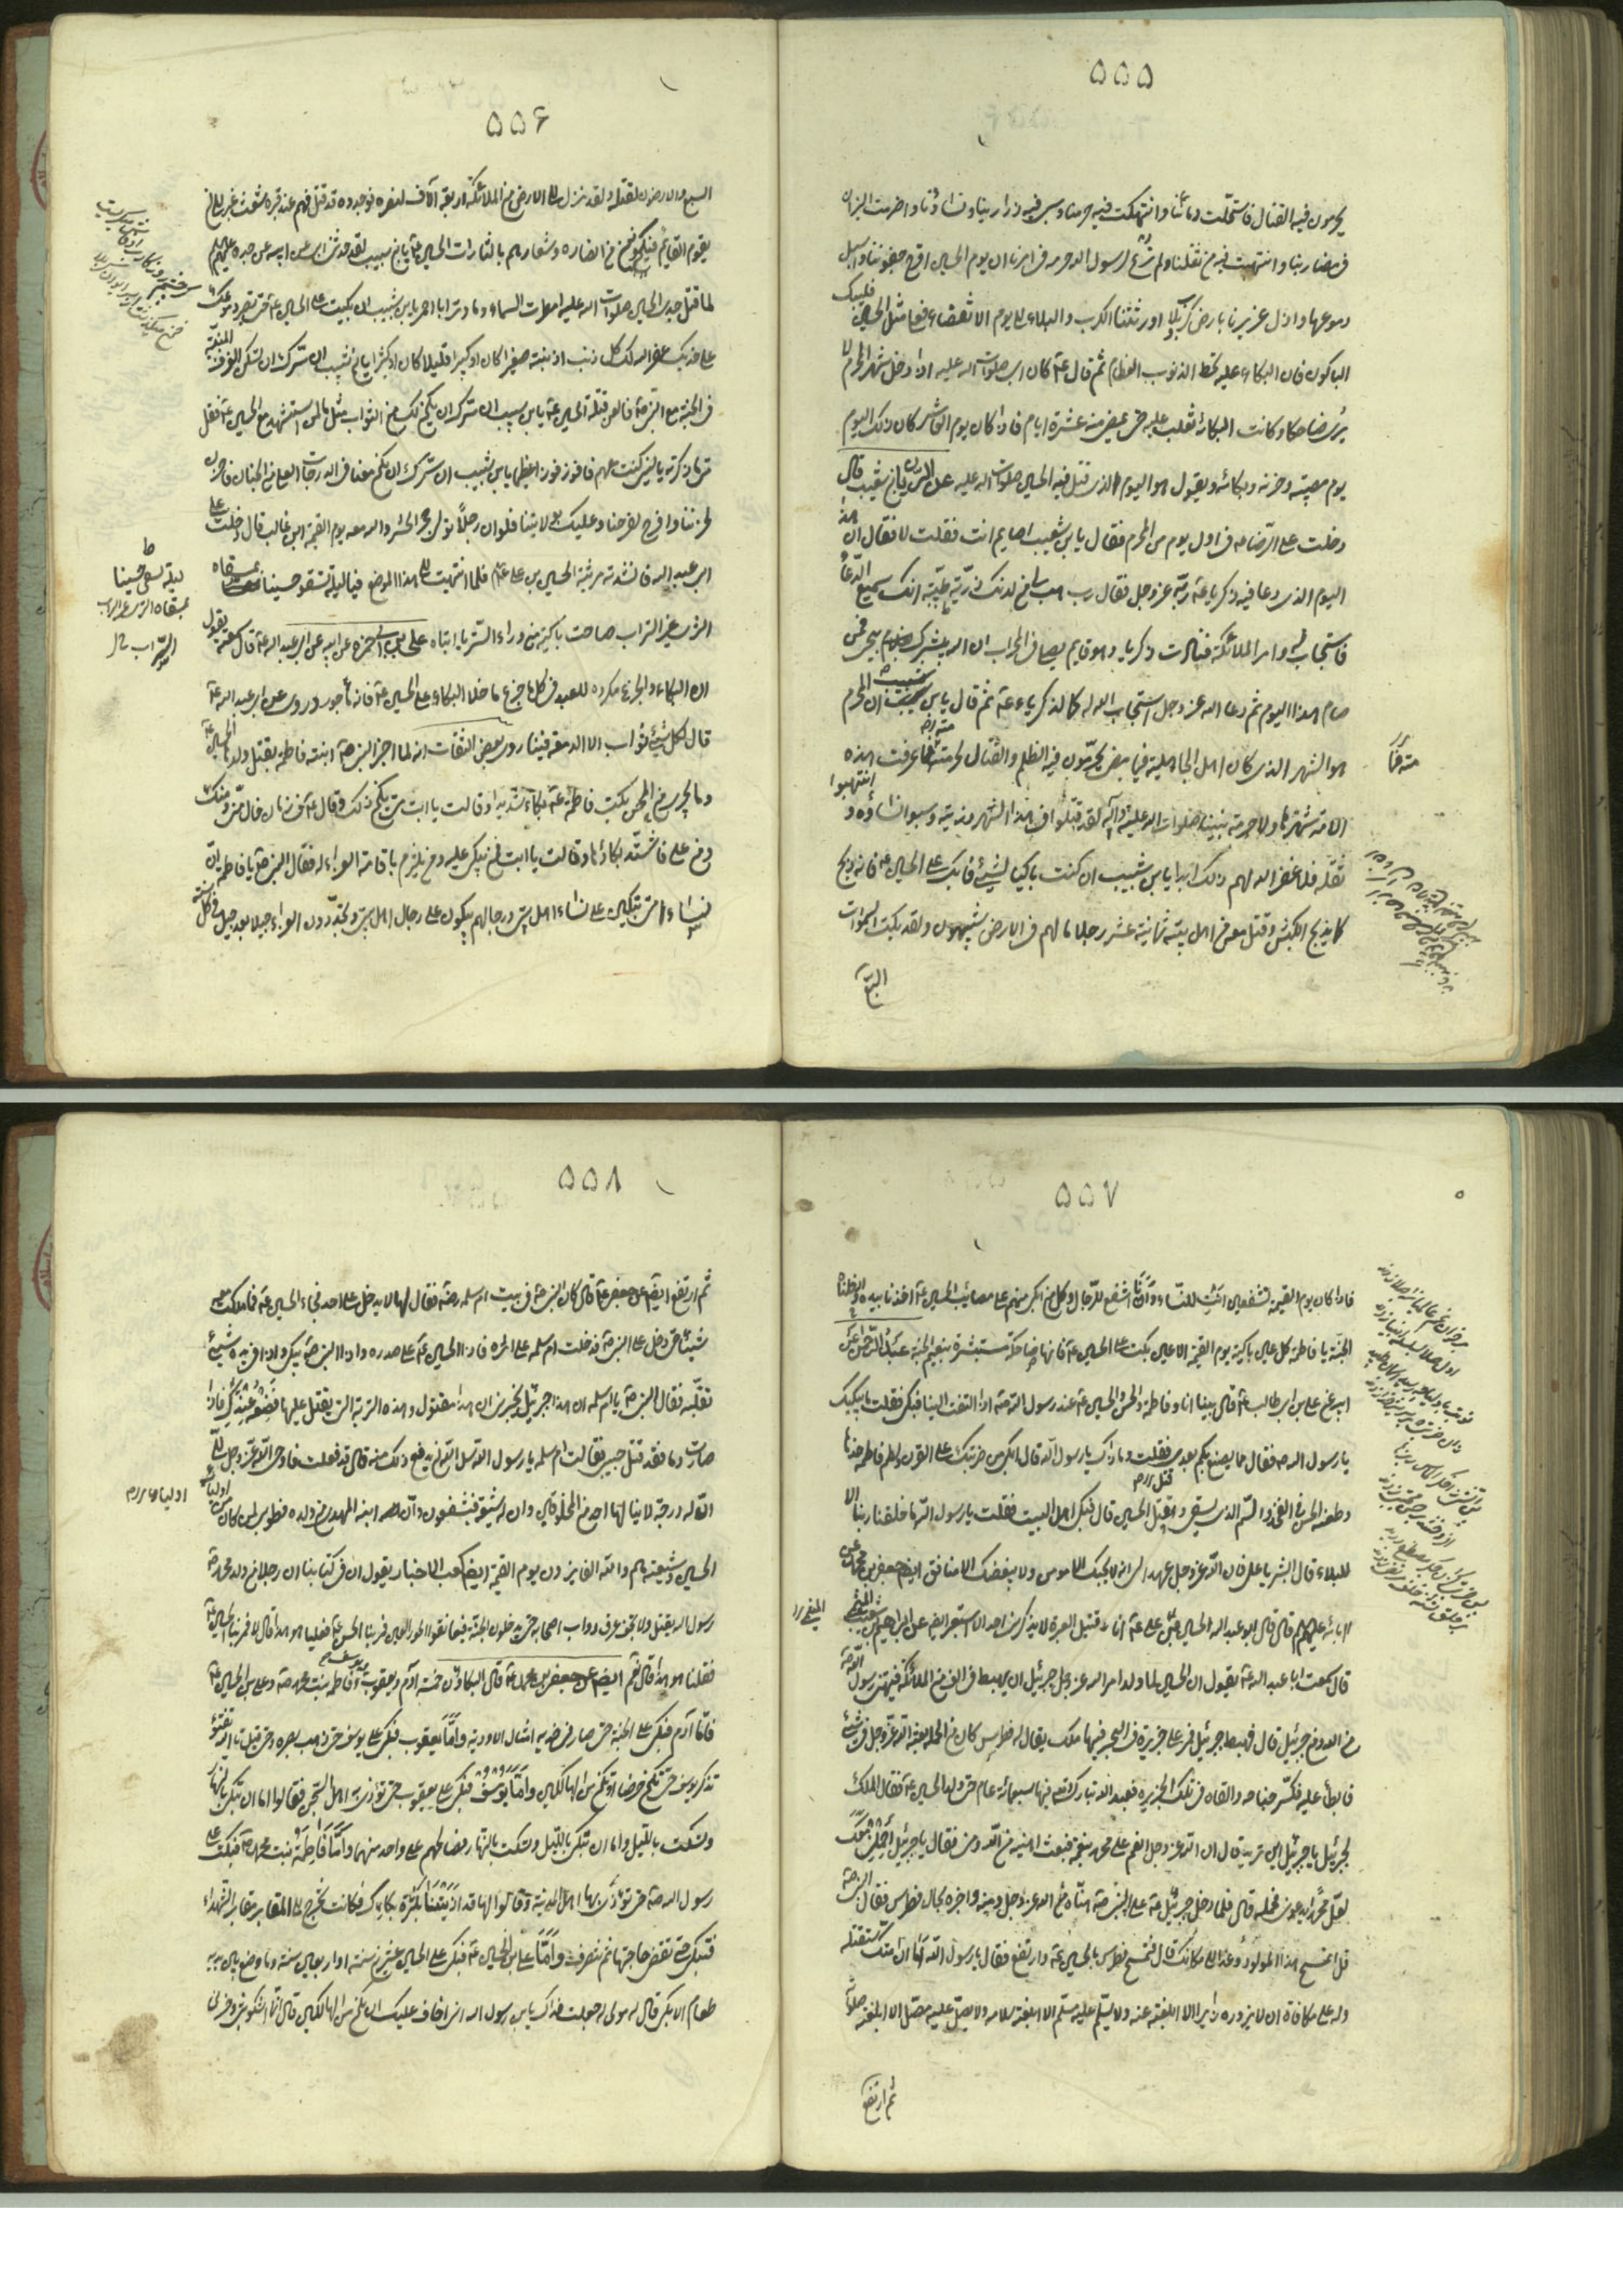 ۵۵۵
يحرمون فيه القتال فاستحلت دمائنا وانتهكت فيه حرمتنا وسبى فيه ذرارينا ونساؤنا واضرمت النيران
فى مضاربنا وانتهبت فيه من ثقلنا ولم ترع لرسول الله حرمة فى امرنا ان يوم الحسين اقرح جفوننا واسبل
دموعها واذل عزيزنا بارض كربلا اورثتنا الكرب والبلاء الى يوم الانقضاء فعلى مثل الحسين فليبك
الباكون فان البكاء عليه يحط الذنوب العظام ثم قال ع كان ابى صلوات الله عليه اذا دخل شهر المحرم لا
يرى ضاحكا وكانت الكآبة تغلب عليه حتى يمضى منه عشرة ايام فاذا كان يوم العاشر كان ذلك اليوم
يوم مصيبته وحزنه وبكائه ويقول هو اليوم الذى قتل فيه الحسين صلوات الله عليه عن الريان بن شبيب قال
دخلت على الرضا ع فى اول يوم من المحرم فقال يابن شبيب اصايم انت فقلت لا فقال ان هذا
اليوم الذى دعا فيه زكريا ع ربه عز وجل فقال رب هب لى من لدنك ذرية طيبة انك سميع الدعاء
فاستجاب له وامر الملائكة فنادت زكريا وهو قايم يصلى فى المحراب ان الله يبشرك بيحيى فمن
صام هذا اليوم ثم دعا الله عز وجل استجاب الله له كما لزكريا ع ثم قال يابن شبيب ان المحرم
هو الشهر الذى كان اهل الجاهلية فيما مضى يحرمون فيه الظلم والقتال لحرمته فما عرفت هذه
الامة حرمة شهرها ولا حرمة نبيها صلوات الله عليه وآله لقد قتلوا فى هذا الشهر ذريته وسبوا نساؤه وانتهبوا
ثقله فلا غفر الله لهم ذلك ابدا يابن شبيب ان كنت باكيا لشيئ فابك على الحسين ع فانه ذبح
كما يذبح الكبش وقتل معه من اهل بيته ثمانية عشر رجلا ما لهم فى الارض شبيهون ولقد بكت السموات
السبع
۵۵۶
السبع والارضون لقتله ولقد نزل الى الارض من الملائكة اربعة آلاف لنصره فوجدوه قد قتل فهم عند قبره شعث غبر الى ان
يقوم القايم فيكونون من انصاره وشعارهم يالثارات الحسين ع يابن شبيب لقد حدثنى ابى عن ابيه عن جده عليهم
لما قتل جدى الحسين صلوات الله عليه امطرت السماء دما وترابا احمر يابن شبيب ان بكيت على الحسين ع حتى تصير دموعك
على خديك غفر الله لك كل ذنب اذنبته صغيرا كان او كبيرا قليلا كان او كثيرا يابن شبيب ان سرك ان تسكن الغرف المبنية
فى الجنة مع النبى ص فالعن قتلة الحسين ع يابن شبيب ان سرك ان يكون لك من الثواب مثل ما لمن استشهد مع الحسين ع فقل
متى ما ذكرته يا ليتنى كنت معهم فافوز فوزا عظيما يابن شبيب ان سرك ان تكون معنا فى الدرجات العلى من الجنان فاحزن
لحزننا وافرح لفرحنا وعليك بولايتنا فلو ان رجلا تولى حجرا لحشره الله معه يوم القيمة ابن غالب قال دخلت على
ابى عبد الله فانشدته مرثية الحسين بن على ع فلما انتهيت الى هذا الموضع فيا لبلية تسقو حسينا بمسقاة
الثرى غير التراب صاحت باكية من وراء الستر يا ابتاه على بن ابى حمزة عن ابيه عن ابى عبد الله ع قال سمعته يقول
ان البكاء والجزع مكروه للعبد فى كل ما جزع ما خلا البكاء على الحسين ع فانه مأجور وروى عن ابى عبد الله ع
قال لكل شيئ ثواب الا الدمعة فينا روى بعض الثقات انه لما اخبر النبى ص ابنته فاطمة بقتل ولدها الحسين
وما يجرى من المحن بكت فاطمة ع بكاء شديدا وقالت يا ابت متى يكون ذلك وقال ع فى زمان خال منى ومنك
ومن على فاشتد بكاؤها وقالت يا ابت فمن يبكى عليه ومن يلتزم باقامة العزاء له فقال النبى ص يا فاطمة ان
نساء امتى تبكين على نساء اهل بيتى ورجالهم يبكون على رجال اهل بيتى ويجددون العزاء جيلا بعد جيل فى كل سنة
۵۵۷
فاذا كان يوم القيمة تشفعين انت للنساء وانا اشفع للرجال وكل من بكى منهم على مصايب الحسين ع اخذنا بيده وادخلناه
الجنة يا فاطمة كل عين باكية يوم القيمة الا عين بكت على الحسين ع فانها ضاحكة مستبشرة بنعيم الجنة
على بن ابى طالب ع قال بينا انا وفاطمة والحسن والحسين ع عند رسول الله ص اذا التفت الينا فبكى فقلت ما يبكيك
يا رسول الله ص فقال مما يصنع بكم بعدى فقلت وما ذاك يا رسول الله قال ابكى من ضربتك على القرن ولطم فاطمة خدها
وطعنة الحسن فى الفخذ والسم الذى يسقى وقتل الحسين قال فبكى اهل البيت فقلت يا رسول الله ما خلقنا ربنا الا
للبلاء قال ابشر يا على فان الله عز وجل عهد الى انه لا يحبك الا مومن ولا يبغضك الا منافق ايضا جعفر بن محمد عن
آبائه عليهم قال قال ابو عبد الله الحسين بن على ع انا قتيل العبرة لا يذكرنى احد الا استعبر ايضا عن ابراهيم بن شعيب الميثمى
قال سمعت ابا عبد الله ع يقول ان الحسين لما ولد امر الله عز وجل جبرئيل ان يهبط فى الف من الملائكة فيهنئ رسول الله ص
من الله ومن جبرئيل قال فهبط جبرئيل فمر على جزيرة فى البحر فيها ملك يقال له فطرس كان من الحملة بعثه الله عز وجل فى شيئ
فابطأ عليه فكسر جناحه والقاه فى تلك الجزيرة فعبد الله تبارك وتعالى فيها سبعمائة عام حتى ولد الحسين ع فقال الملك
لجبرئيل يا جبرئيل اين تريد قال ان الله عز وجل انعم على محمد بنعمة فبعثت اهنيه من الله ومنى فقال يا جبرئيل احملنى معك
لعل محمدا يدعو لى فحمله قال فلما دخل جبرئيل ع على النبى ص هناه من الله عز وجل ومنه واخبره بحال فطرس فقال النبى ص
قل له تمسح بهذا المولود وعد الى مكانك قال فتمسح فطرس بالحسين ع وارتفع فقال يا رسول الله اما ان امتك ستقتله
وله على مكافاة ان لا يزوره زاير الا ابلغته عنه ولا يسلم عليه مسلم الا ابلغته سلامه ولا يصلى عليه مصل الا ابلغته صلواته
ثم ارتفع
۵۵۸
ثم ارتفع ايضا عن جعفر ع قال كان النبى ص فى بيت ام سلمة رضه فقال لها لا يدخل على احد فجاء الحسين ع فما ملكت معه
شيئا حتى دخل على النبى ص فدخلت ام سلمة على اثره فاذا الحسين ع على صدره واذا النبى ص يبكى واذا فى يده شيئ
تقلبه فقال النبى ص يا ام سلمة ان هذا جبرئيل يخبرنى ان هذا مقتول وهذه التربة التى يقتل عليها فضعه عندك فاذا
صارت دما فقد قتل حبيبى فقالت ام سلمة يا رسول الله سل الله ان يدفع ذلك عنه قال قد فعلت فاوحى الله عز وجل الى
ان له درجة لا ينالها احد من المخلوقين وان له شيعة فيشفعون وان المهدى من ولده فطوبى لمن كان من اولياء
الحسين وشيعته هم والله الفايزون يوم القيمة ايضا كعب الاحبار يقول ان فى كتابنا ان رجلا من ولد محمد ص
رسول الله يقتل ولا يجف عرق دواب اصحابه حتى يدخلون الجنة فيعانقوا الحور العين فمر بنا الحسن ع فقلنا هو هذا قال لا فمر بنا الحسين ع
فقلنا هو هذا قال نعم ايضا عن جعفر بن محمد ع قال البكاؤن خمسة آدم ويعقوب ويوسف وفاطمة بنت محمد ص وعلى بن الحسين ع
فاما آدم فبكى على الجنة حتى صار فى خديه امثال الاودية واما يعقوب فبكى على يوسف حتى ذهب بصره وحتى قيل له تالله تفتؤ
تذكر يوسف حتى تكون حرضا او تكون من الهالكين واما يوسف فبكى على يعقوب حتى تؤذى به اهل السجن فقالوا اما ان تبكى بالنهار
وتسكت بالليل واما ان تبكى بالليل وتسكت بالنهار فصالحهم على واحد منهما واما فاطمة بنت محمد ص فبكت على
رسول الله ص حتى تؤذى بها اهل المدينة وقالوا لها قد اذيتنا بكثرة بكائك فكانت تخرج الى المقابر مقابر الشهداء
فتبكى حتى تقضى حاجتها ثم تنصرف واما على بن الحسين ع فبكى على الحسين عشرين سنة او اربعين سنة وما وضع بين يديه
طعام الا بكى قال له مولى له جعلت فداك يابن رسول الله انى اخاف عليك ان تكون من الهالكين قال انما اشكو بثى وحزنى